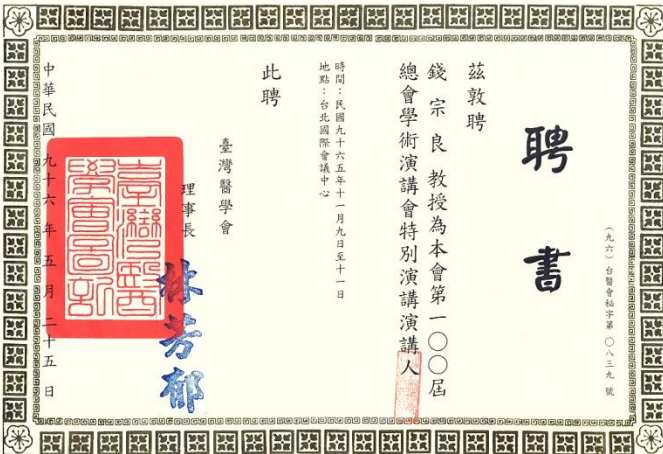 聘書
(九六)台醫會秘字第○八三九號
茲敦聘
錢宗良教授為本會第一○○屆
總會學術演講會特別演講演講人
時間：民國九十六五年十一月九日至十一日
地點：台北國際會議中心
此聘
臺灣醫學會
理事長
林芳郁
臺灣醫學會圖記
中華民國九十六年五月二十五日